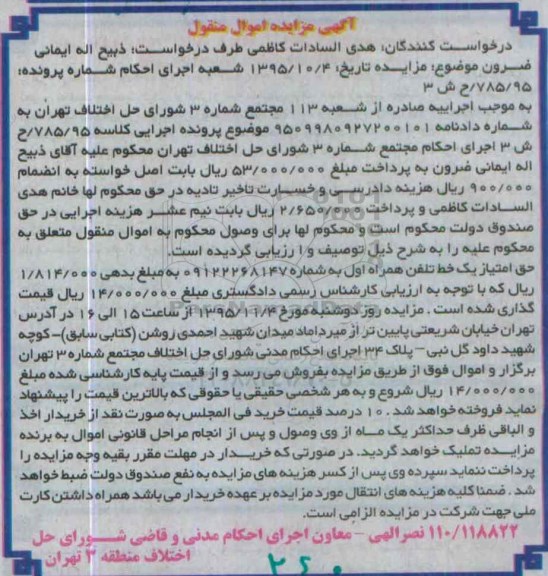 آگهی مزایده اموال منقول
درخواست کنندگان: هدی السادات کاظمی طرف درخواست: ذبیح اله ایمانی
ضرون موضوع: مزایده تاریخ: ۱۳۹۵/۱۰/۴ شعبه اجرای احکام شماره پرونده:
۷۸۵/۹۵/ح ش ۳
به موجب اجراییه صادره از شعبه ۱۱۳ مجتمع شماره ۳ شورای حل اختلاف تهران به
شماره دادنامه ۹۵۰۹۹۸۰۹۲۷۲۰۰۱۰۱ موضوع پرونده اجرایی کلاسه ۷۸۵/۹۵/ح
ش ۳ اجرای احکام مجتمع شماره ۳ شورای حل اختلاف تهران محکوم علیه آقای ذبیح
اله ایمانی ضرون به پرداخت مبلغ ۵۳/۰۰۰/۰۰۰ ریال بابت اصل خواسته به انضمام
۹۰۰/۰۰۰ ریال هزینه دادرسی و خسارت تاخیر تادیه در حق محکوم لها خانم هدی
السادات کاظمی و پرداخت ۲/۶۵۰/۰۰۰ ریال بابت نیم عشر هزینه اجرایی در حق
صندوق دولت محکوم است و محکوم لها برای وصول محکوم به اموال منقول متعلق به
محکوم علیه را به شرح ذیل توصیف و ارزیابی گردیده است.
حق امتیاز یک خط تلفن همراه اول به شماره ۰۹۱۲۲۲۶۸۱۴۷ به مبلغ بدهی ۱/۸۱۴/۰۰۰
ریال که با توجه به ارزیابی کارشناس رسمی دادگستری مبلغ ۱۴/۰۰۰/۰۰۰ ریال قیمت
گذاری شده است . مزایده روز دوشنبه مورخ ۱۳۹۵/۱۱/۴ از ساعت ۱۵ الی ۱۶ در آدرس
تهران خیابان شریعتی پایین تر از میرداماد میدان شهید احمدی روشن (کتابی سابق)- کوچه
شهید داود گل نبی - پلاک ۳۴ اجرای احکام مدنی شورای حل اختلاف مجتمع شماره ۳ تهران
برگزار و اموال فوق از طریق مزایده بفروش می رسد و از قیمت پایه کارشناسی شده مبلغ
۱۴/۰۰۰/۰۰۰ ریال شروع و به هر شخصی حقیقی یا حقوقی که بالاترین قیمت را پیشنهاد
نماید فروخته خواهد شد . ۱۰ درصد قیمت خرید فی المجلس به صورت نقد از خریدار اخذ
و الباقی ظرف حداکثر یک ماه از وی وصول و پس از انجام مراحل قانونی اموال به برنده
مزایده تملیک خواهد گردید. در صورتی که خریدار در مهلت مقرر بقیه وجه مزایده را
پرداخت ننماید سپرده وی پس از کسر هزینه های مزایده به نفع صندوق دولت ضبط خواهد
شد . ضمنا کلیه هزینه های انتقال مورد مزایده بر عهده خریدار می باشد همراه داشتن کارت
ملی جهت شرکت در مزایده الزامی است.
۱۱۰/۱۱۸۸۲۲ نصرالهی - معاون اجرای احکام مدنی و قاضی شورای حل
اختلاف منطقه ۳ تهران
۲۶۰